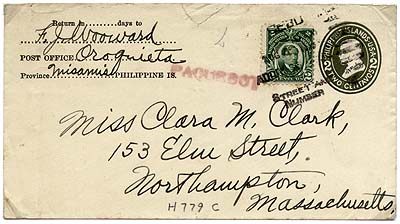 Return in ........ days to
F. J. Woorward
POST OFFICE: Oroquieta
Province, Misamis PHILIPPINE IS.
PAQUEBOT
STREET A
NUMBER
PHILIPPINE ISLANDS USA
2 TWO CENTAVOS 2
Miss Clara M. Clark,
153 Elm Street,
Northampton,
Massachusetts,
H 779 C